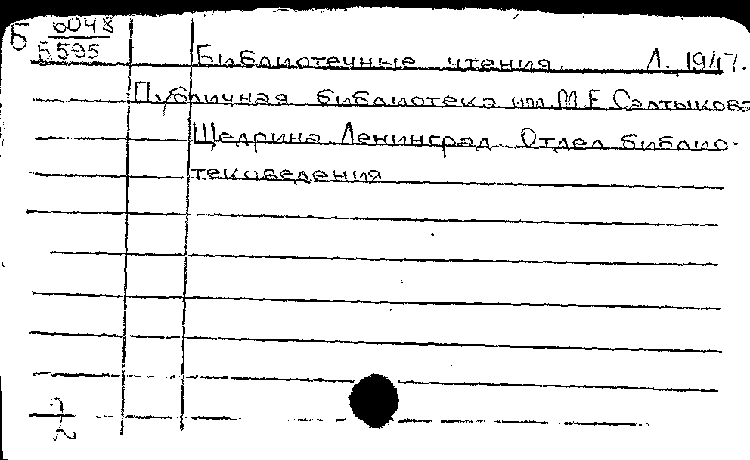 Б 6048
Б595
Библиотечные чтения. Л. 1947.
Публичная библиотека им. М.Е. Салтыкова
Щедрина. Ленинград. Отдел библио-
тековедения